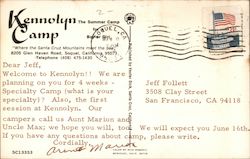 Kennolyn
The Summer Camp
Camp
"Where the Santa Cruz Mountains meet the Sea"
8205 Glen Haven Road, Soquel, California 95073
Telephone (408) 475-1430
Dear Jeff,
Welcome to Kennolyn!! We are
planning on you for 4 weeks -
Specialty Camp (what is your
specialty?) Also, the first
session at Kennolyn. Our
campers call us Aunt Marion and
Uncle Max; we hope you will, too.
If you have any questions about camp, please write.
Cordially,
Aunt Marion
SC13353
Jeff Follett
3508 Clay Street
San Francisco, CA 94118
We will expect you June 16th.